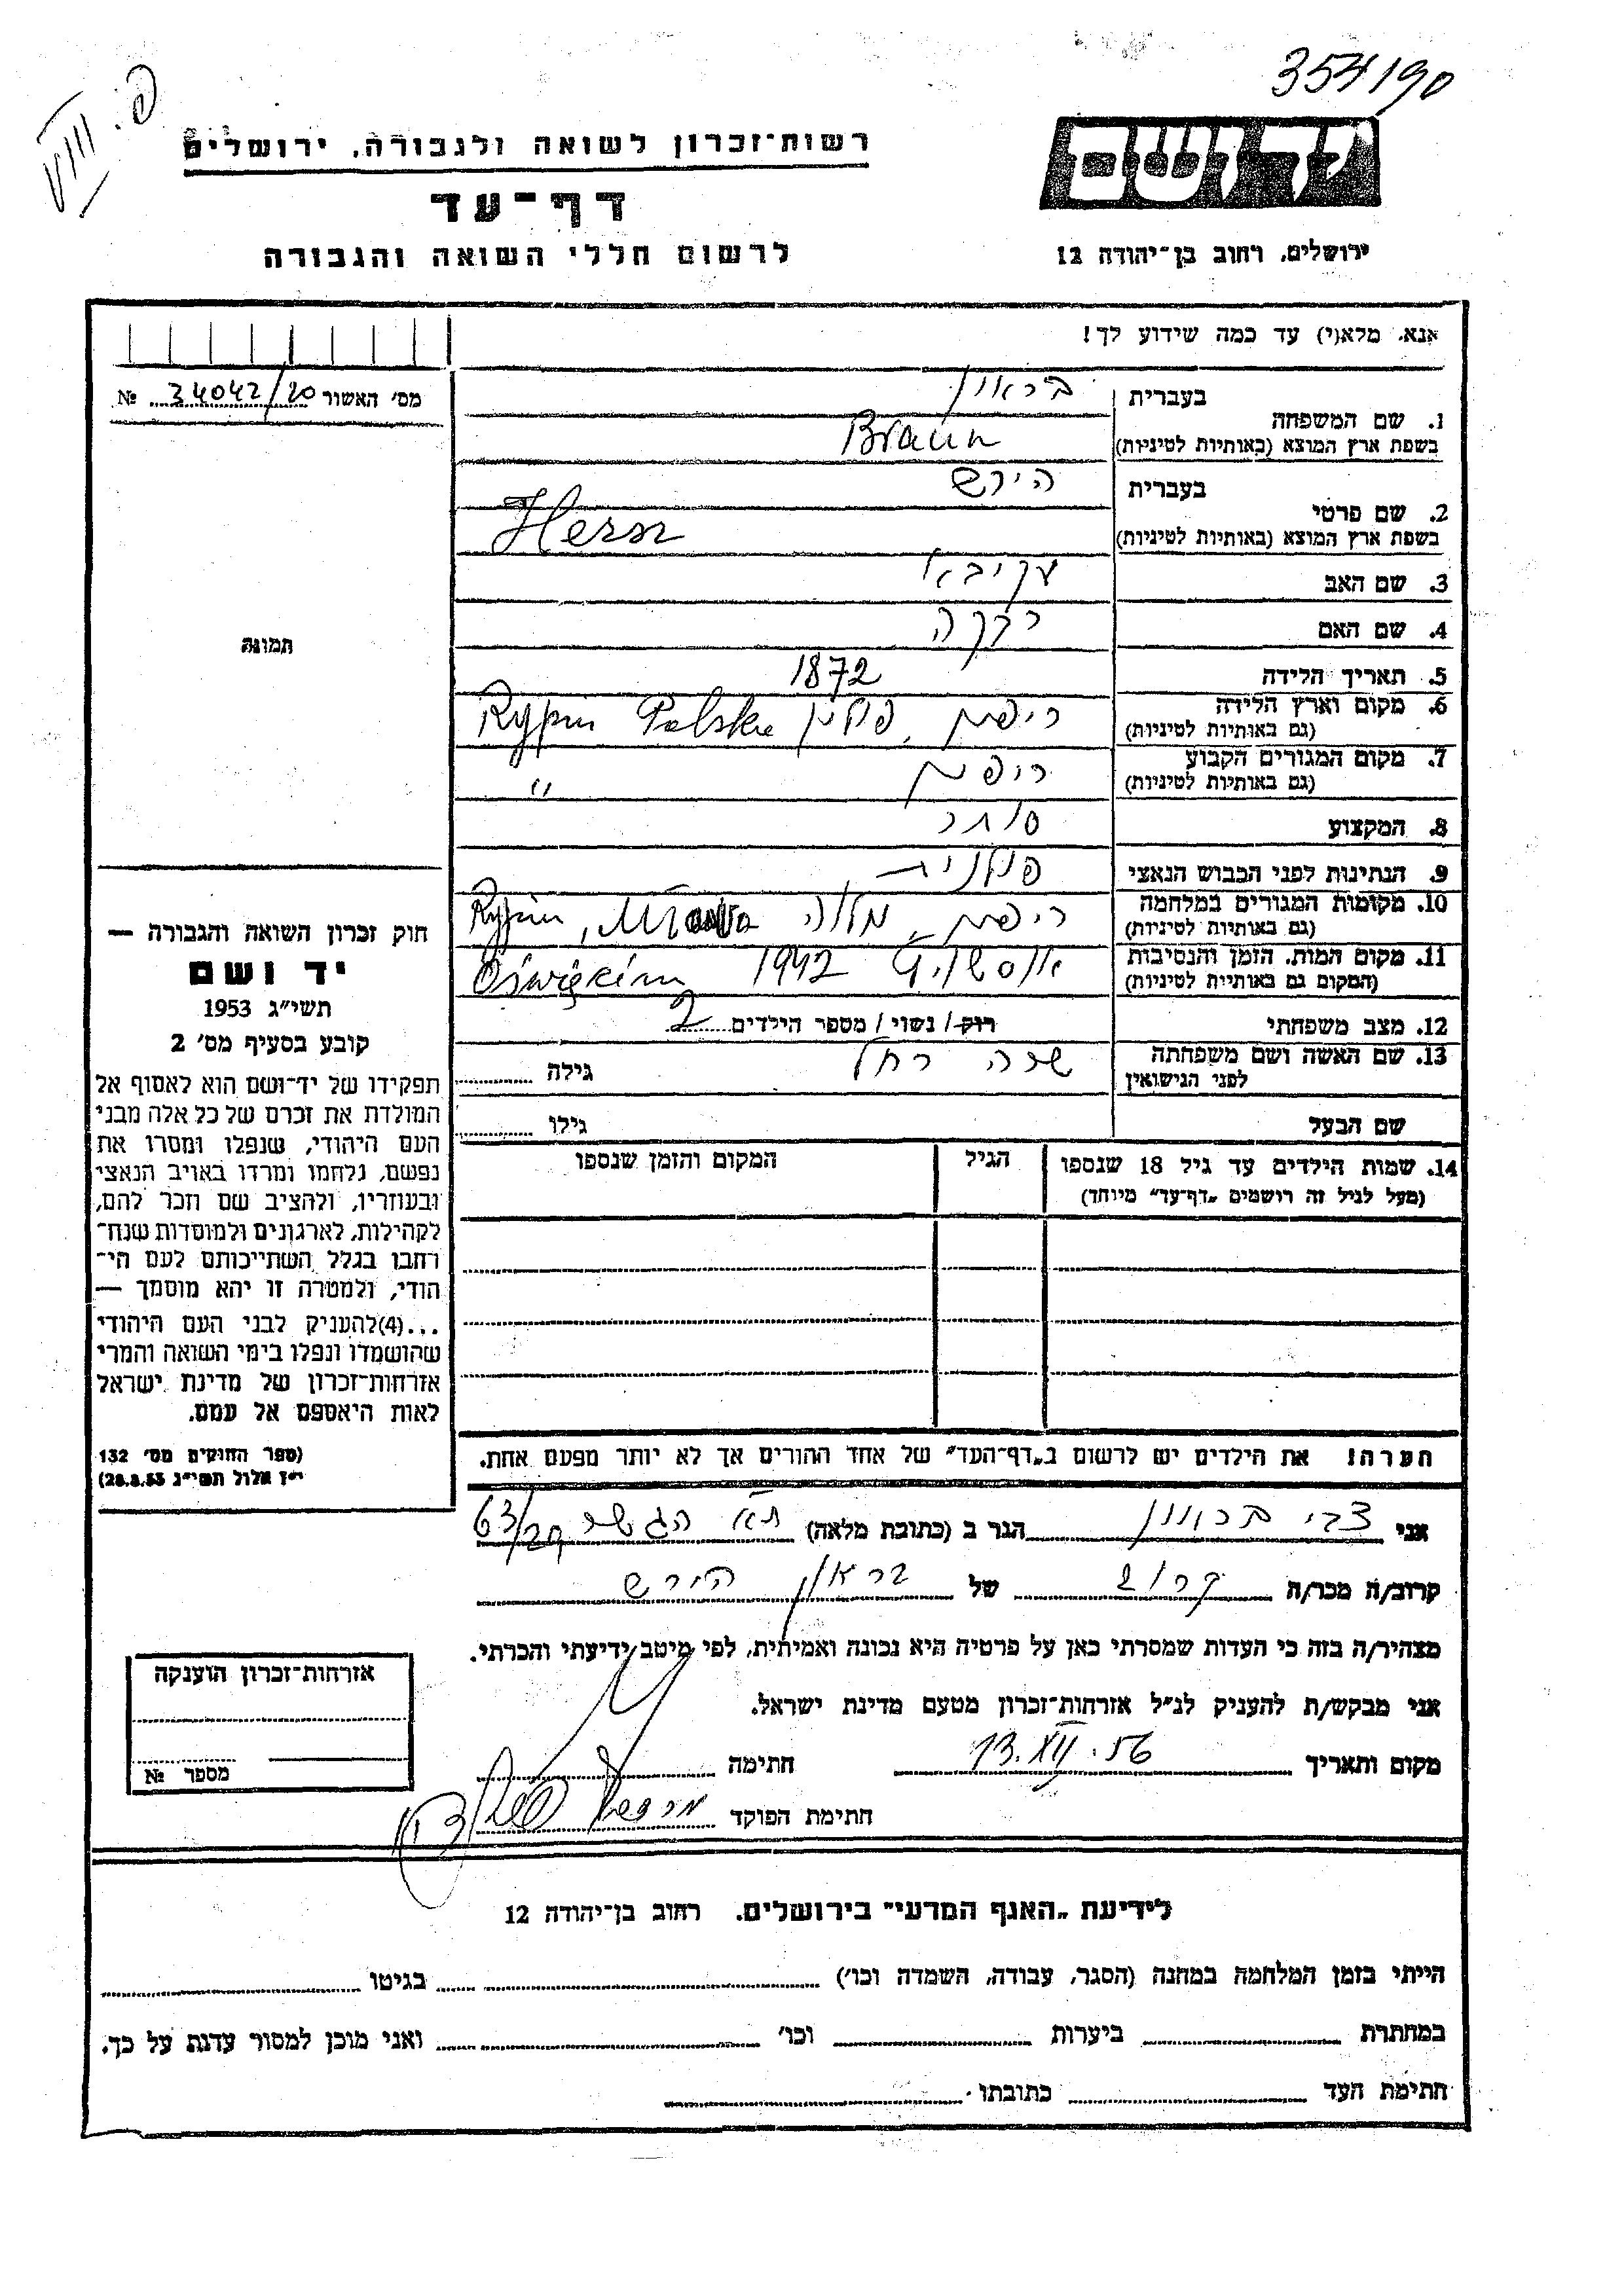 354190
פ. VIII
יד ושם
רשות־זכרון לשואה ולגבורה, ירושלים
דף־עד
לרשום חללי השואה והגבורה
ירושלים, רחוב בן־יהודה 12
אנא, מלא(י) עד כמה שידוע לך!
מס' האשור 34042/20 №
1. שם המשפחה
בעברית בראון
בשפת ארץ המוצא (באותיות לטיניות) Braun
2. שם פרטי
בעברית הירש
בשפת ארץ המוצא (באותיות לטיניות) Hersz
3. שם האב עקיבא
4. שם האם רבקה
5. תאריך הלידה 1872
6. מקום וארץ הלידה ריפין, פולין Rypin Polska
(גם באותיות לטיניות)
7. מקום המגורים הקבוע ריפין "
(גם באותיות לטיניות)
8. המקצוע סוחר
9. הנתינות לפני הכבוש הנאצי פולנית
10. מקומות המגורים במלחמה ריפין, מלוה Rypin, Mława
(גם באותיות לטיניות)
11. מקום המות, הזמן והנסיבות אושויץ 1942 Oświęcim
(המקום גם באותיית לטיניות)
12. מצב משפחתי רוק / נשוי / מספר הילדים 2
13. שם האשה ושם משפחתה שרה רחל גילה
לפני הנישואין
שם הבעל גילו
14. שמות הילדים עד גיל 18 שנספו הגיל המקום והזמן שנספו
(מעל לגיל זה רושמים „דף־עד" מיוחד)
תמונה
חוק זכרון השואה והגבורה —
יד ושם
תשי"ג 1953
קובע בסעיף מס' 2
תפקידו של יד־ושם הוא לאסוף אל
המולדת את זכרם של כל אלה מבני
העם היהודי, שנפלו ומסרו את
נפשם, נלחמו ומרדו באויב הנאצי
ובעוזריו, ולהציב שם וזכר להם,
לקהילות, לארגונים ולמוסדות שנח־
רחבו בגלל השתייכותם לעם הי־
הודי, ולמטרה זו יהא מוסמך —
...(4)להעניק לבני העם היהודי
שהושמדו ונפלו בימי השואה והמרי
אזרחות־זכרון של מדינת ישראל
לאות היאספם אל עמם.
(ספר החוקים מס' 132
י"ז אלול תשי"ג 28.8.53)
הערה! את הילדים יש לרשום ב„דף־העד" של אחד ההורים אך לא יותר מפעם אחת.
אני צבי בראון הגר ב (כתובת מלאה) ת"א 63/
קרוב/ה מכר/ה קרוב של בראון הירש
מצהיר/ה בזה כי העדות שמסרתי כאן על פרטיה היא נכונה ואמיתית, לפי מיטב ידיעתי והכרתי.
אני מבקש/ת להעניק לנ"ל אזרחות־זכרון מטעם מדינת ישראל.
מקום ותאריך 13.XII.56 חתימה
חתימת הפוקד
אזרחות־זכרון הוענקה
מספר №
לידיעת „האגף המדעי" בירושלים, רחוב בן־יהודה 12
הייתי בזמן המלחמה במחנה (הסגר, עבודה, השמדה וכו') בגיטו
במחתרת ביערות וכו' ואני מוכן למסור עדות על כך.
חתימת העד כתובתו